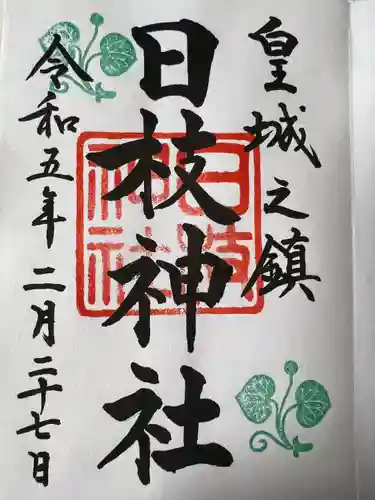 皇城之鎮
日枝神社
日枝神社
令和五年二月二十七日